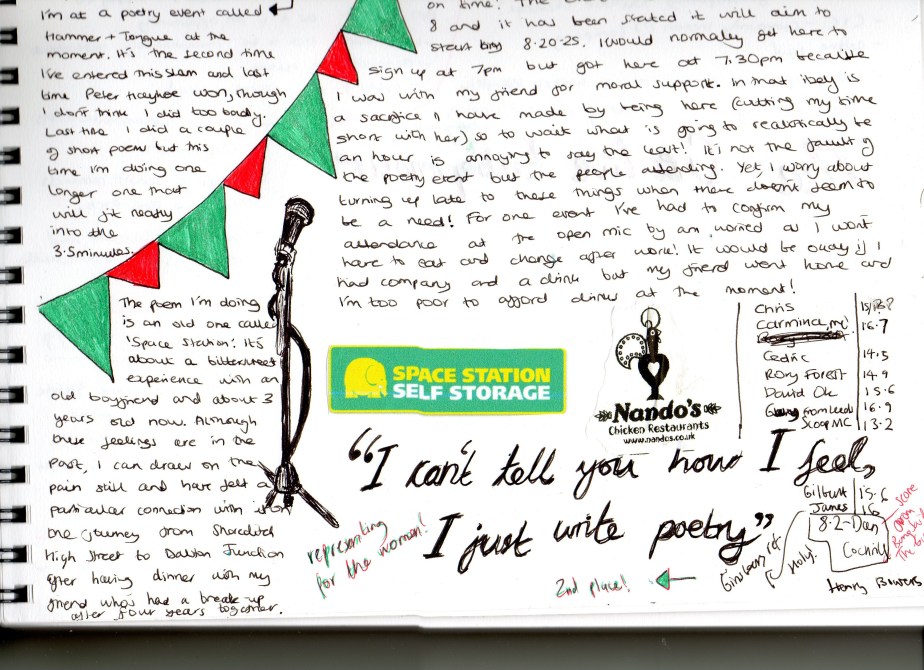 I'm at a poetry event called
Hammer + Tongue at the
moment. It's the second time
I've entered this slam and last
time Peter Hayhoe won, though
I don't think I did too badly.
Last time I did a couple
of short poem but this
time I'm doing one
longer one that
will fit neatly
into the
3.5 minutes.
The poem I'm doing
is an old one called
'Space Station'. It's
about a bittersweet
experience with an
old boyfriend and about 3
years old now. Although
these feelings are in the
past, I can draw on the
pain still and have felt a
particular connection with it on
one journey from Shoreditch
High Street to Dalston Junction
after having dinner with my
friend who's had a break-up
after four years together.
on time.
8 and it has been stated it will aim to
start by 8.20-25. I would normally get here to
sign up at 7pm but got here at 7.30pm because
I was with my friend for moral support. In that itself is
a sacrifice I have made by being here (cutting my time
short with her) so to wait what is going to realistically be
an hour is annoying to say the least! It's not the fault of
the poetry event but the people attending. Yet, I worry about
turning up late to these things when there doesn't seem to
be a need! For one event I've had to confirm my
attendance at the open mic by 6am, worried as I won't
have to eat and change after work! It would be okay if I
had company and a drink but my friend went home and
I'm too poor to afford drinks at the moment!
SPACE STATION
SELF STORAGE
Nando's
Chicken Restaurants
www.nandos.co.uk
Chris
Carmina 16.7
Cedric 14.5
Rory Forest 14.9
David Ok 15.6
from Leeds 16.9
Scoop MC 13.2
"I can't tell you how I feel,
I just write poetry"
Gilbert 15.6
James 16
8.2 - Dan
Cockrill
score
Henry Bowers
Holy!
representing
for the woman!
2nd place!